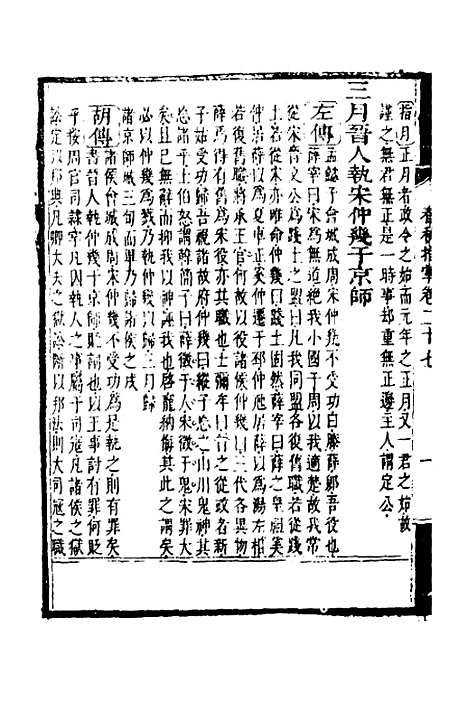 指月正月者政令之始而元年之正月又一君之始故
謹之無君無正是一時事却重無正邊主人謂定公
三月晉人執宋仲幾于京師
左傳孟懿子會城成周宋仲幾不受功曰滕薛郳吾役也
薛宰曰宋為無道絶我小國于周以我適楚故我常
從宋晉文公為踐土之盟曰凡我同盟各復舊職若從踐
土若從宋亦唯命仲幾曰踐土固然薛宰曰薛之皇祖奚
仲居薛以為夏車正奚仲遷于邳仲虺居薛以為湯左相
若復舊職將承王官何故以役諸侯仲幾曰三代各異物
薛焉得有舊為宋役亦其職也士彌牟曰晉之從政者新
子姑受功歸吾視諸故府仲幾曰縱子忘之山川鬼神其
忘諸乎士伯怒謂韓簡子曰薛徵于人宋徵于鬼宋罪大
矣且已無辭而抑我以神誣我也啓寵納侮其此之謂矣
必以仲幾為戮乃執仲幾以歸三月歸
諸京師城三旬而畢乃歸諸侯之戍
胡傳諸侯會城成周宋仲幾不受功為是執之則有罪矣
書晉人執仲幾于京師貶詞也以王事討有罪何貶
乎按周官司隸掌凡囚執人之事屬于司寇凡諸侯之獄
訟定以邦典凡卿大夫之獄訟斷以邦法則大司寇之職
春秋指掌卷二十七
一